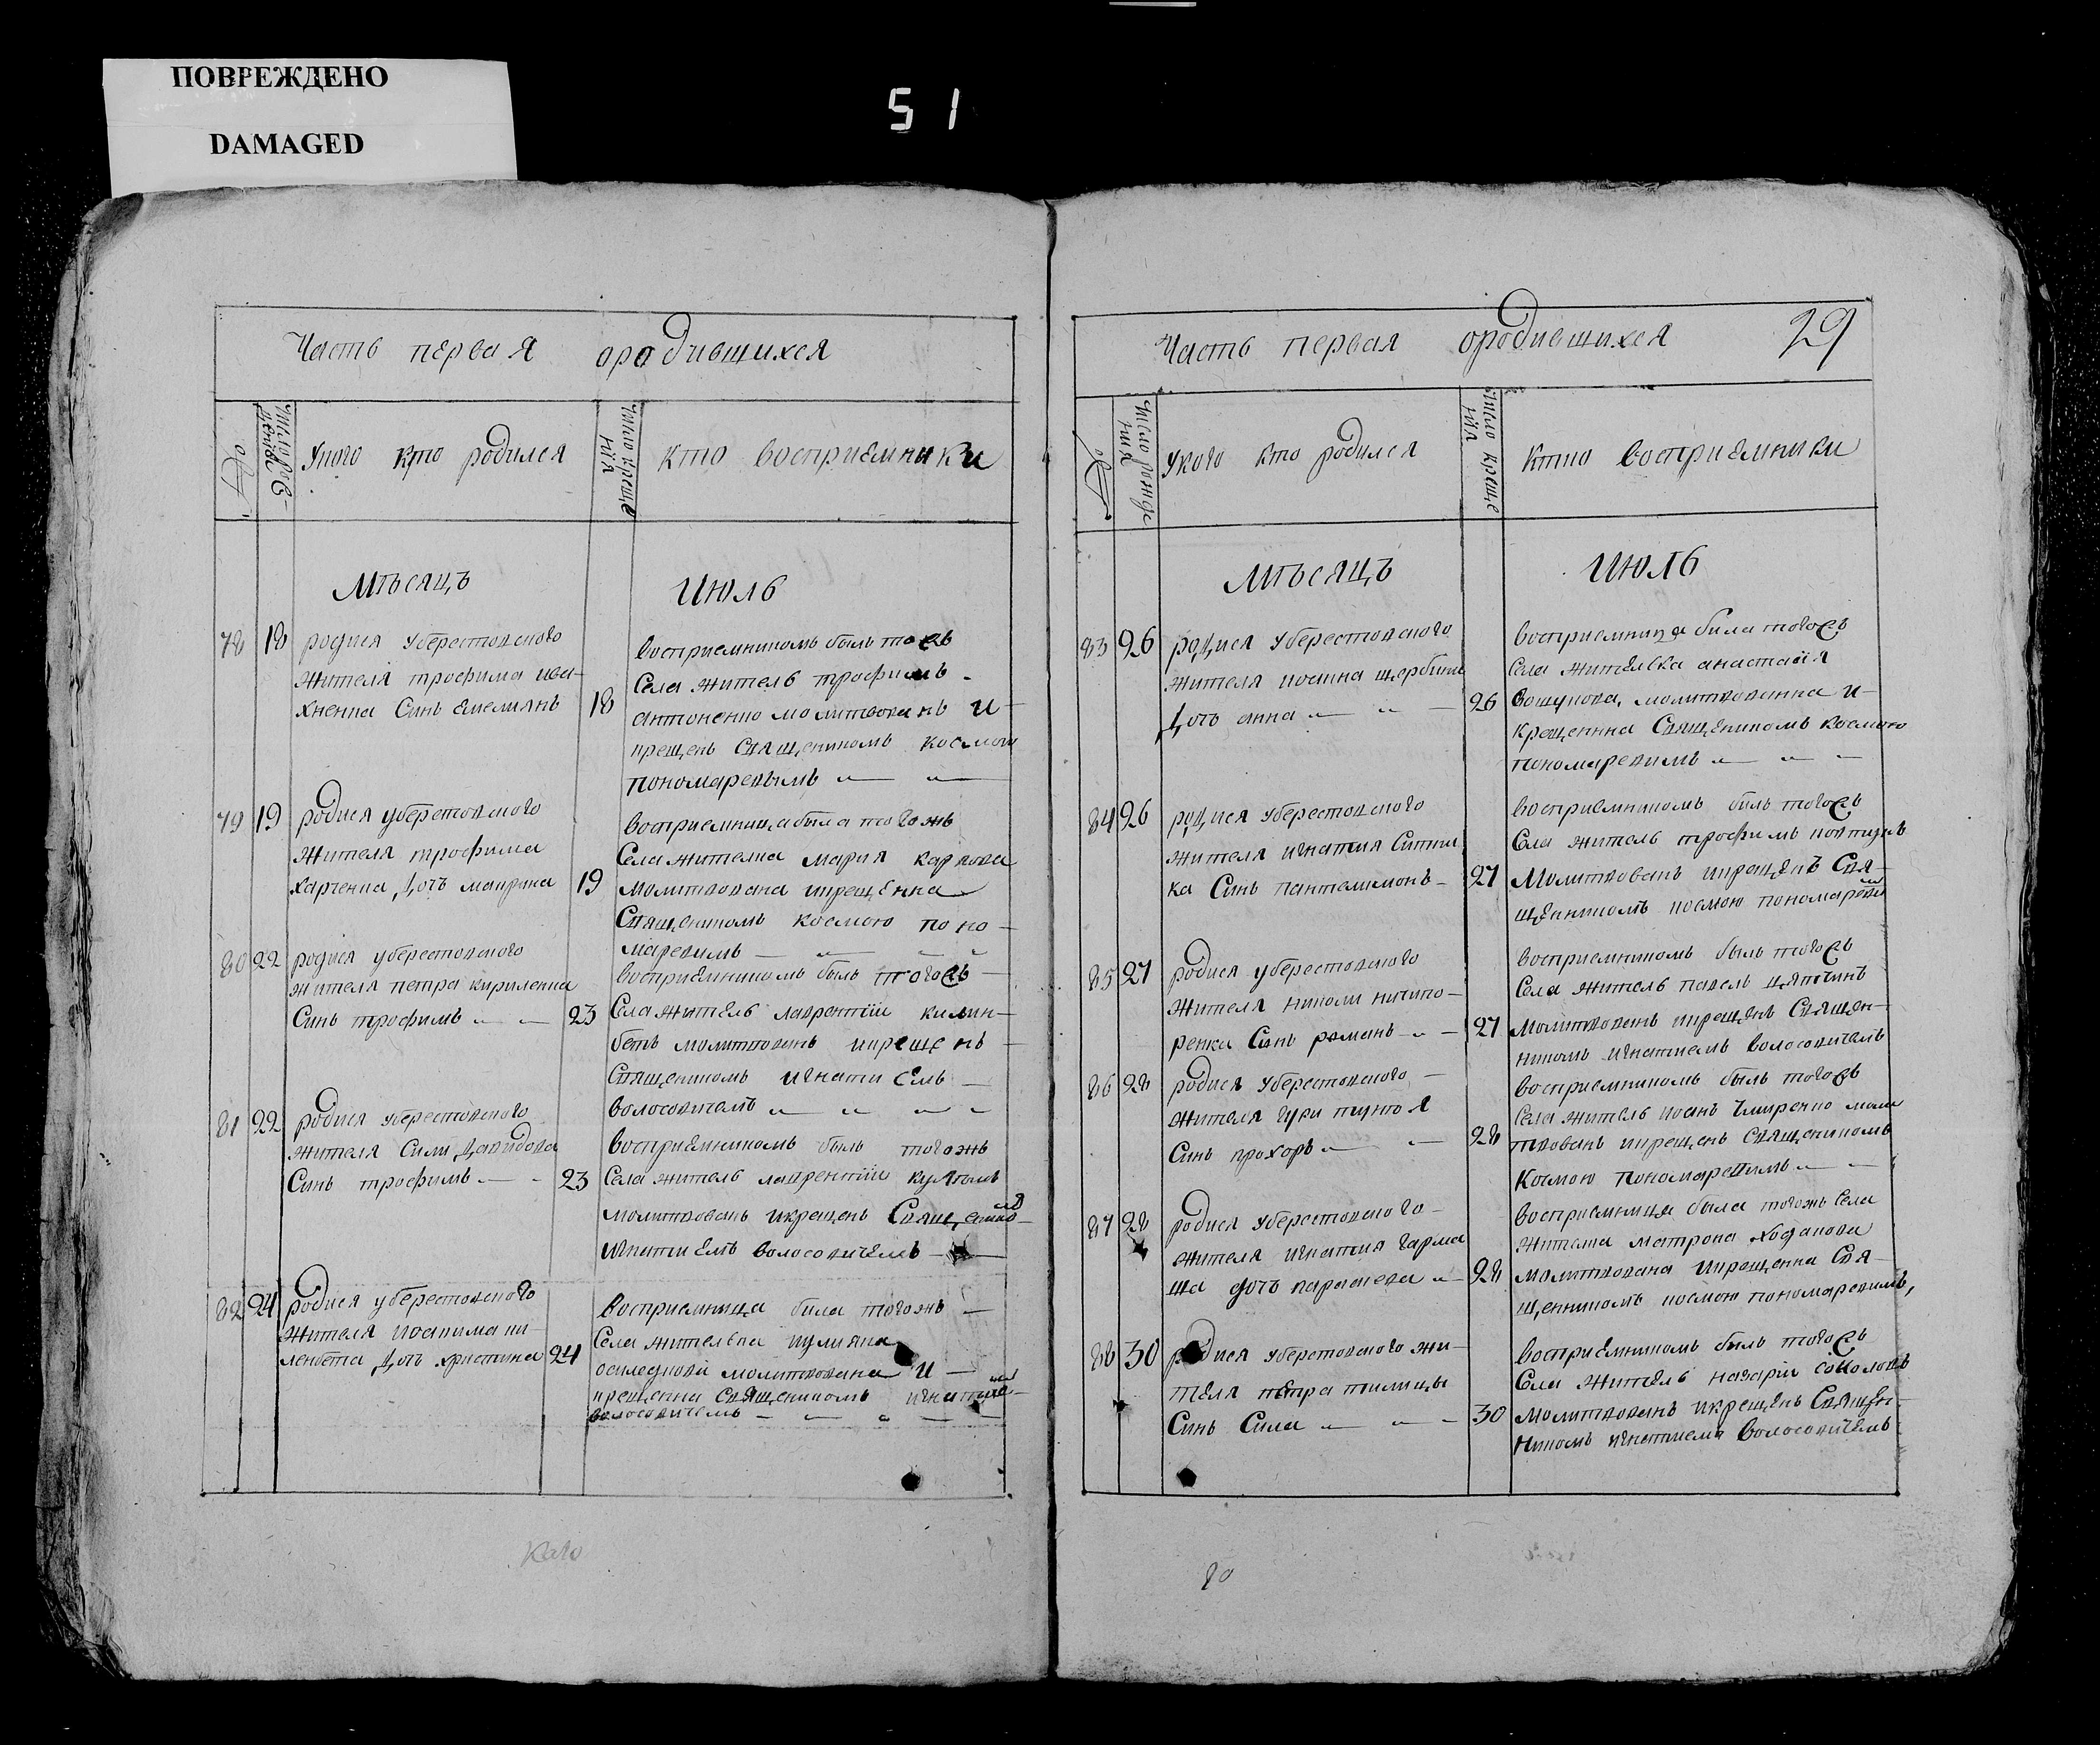 ПОВРЕЖДЕНО
DAMAGED
51
Часть первая ородившихся
Укого кто родился
кто восприемники
Мѣсяцъ Июль
78 18 родися уберестовского
жителя трофима ива-
хненка Синь емелиянъ 18
восприемникомъ быль тогожъ
Села житель трофимъ
антоненко молитвованъ и
крещенъ Священикомъ космою
пономаревымъ
79 19 родися уберестовского
жителя трофима
харченка дочъ маиряна 19
восприемница была тогожъ
Села жителка мария карпова
молитвована икрещенна
Священикомъ космою поно-
маревимъ
80 22 родися уберестовского
жителя петра кириленка
Синь трофимъ 23
восприемникомъ быль тогожъ
Села житель лаврентий килим-
бетъ молитвованъ икрещенъ
Священикомъ игнатиемъ
волосовичемъ
81 22 родися уберестовского
жителя Сили давидова
Синь трофимъ 23
восприемникомъ быль тогожъ
Села житель лаврентий
молитвованъ икрещенъ
игнатиемъ волосовичемъ
82 24 родися уберестовского
жителя иоакима ки-
ленбета дочъ христина 24
восприемница била тогожъ
Села жителька иулияна
молитвована и
крещенна Священикомъ игнатием
волосовичемъ
Како
Часть первая ородившихся 29
Укого кто родился
кто восприемники
Мѣсяцъ Июль
83 26 родися уберестовского
жителя иоанна щербини
дочъ анна 26
восприемница била тогожъ
Села жителька анастасия
молитвованна и
крещенна Священикомъ космою
пономаревимъ
84 26 родися уберестовского
жителя игнатия Ситни
ка Синь пантелимонъ 27
восприемникомъ биль тогожъ
Села житель трофимъ
Молитвованъ икрещенъ Свя-
щенникомъ космою пономаревим
85 27 родися уберестовского
жителя николи ничипо-
ренка Синь романъ 27
восприемникомъ быль тогожъ
Села житель павелъ
молитвованъ икрещенъ Священ-
никомъ игнатиемъ волосовичемъ
86 28 родися уберестовского
жителя
Синь прохоръ 28
восприемникомъ быль тогожъ
Села житель иоанъ моли
твованъ икрещенъ Священикомъ
Космою пономаревимъ
87 28 родися уберестовского
жителя игнатия гарма
ша дочъ параскева 28
восприемница была тогожъ Села
жителка матрона
молитвована икрещенна Свя-
щенникомъ космою пономаревимъ
88 30 родися уберестовского жи-
теля петра пилипци
Синь Сила 30
восприемникомъ быль тогожъ
Села житель назарий соколовъ
молитвованъ икрещенъ Священ-
никомъ игнатиемъ волосовичемъ